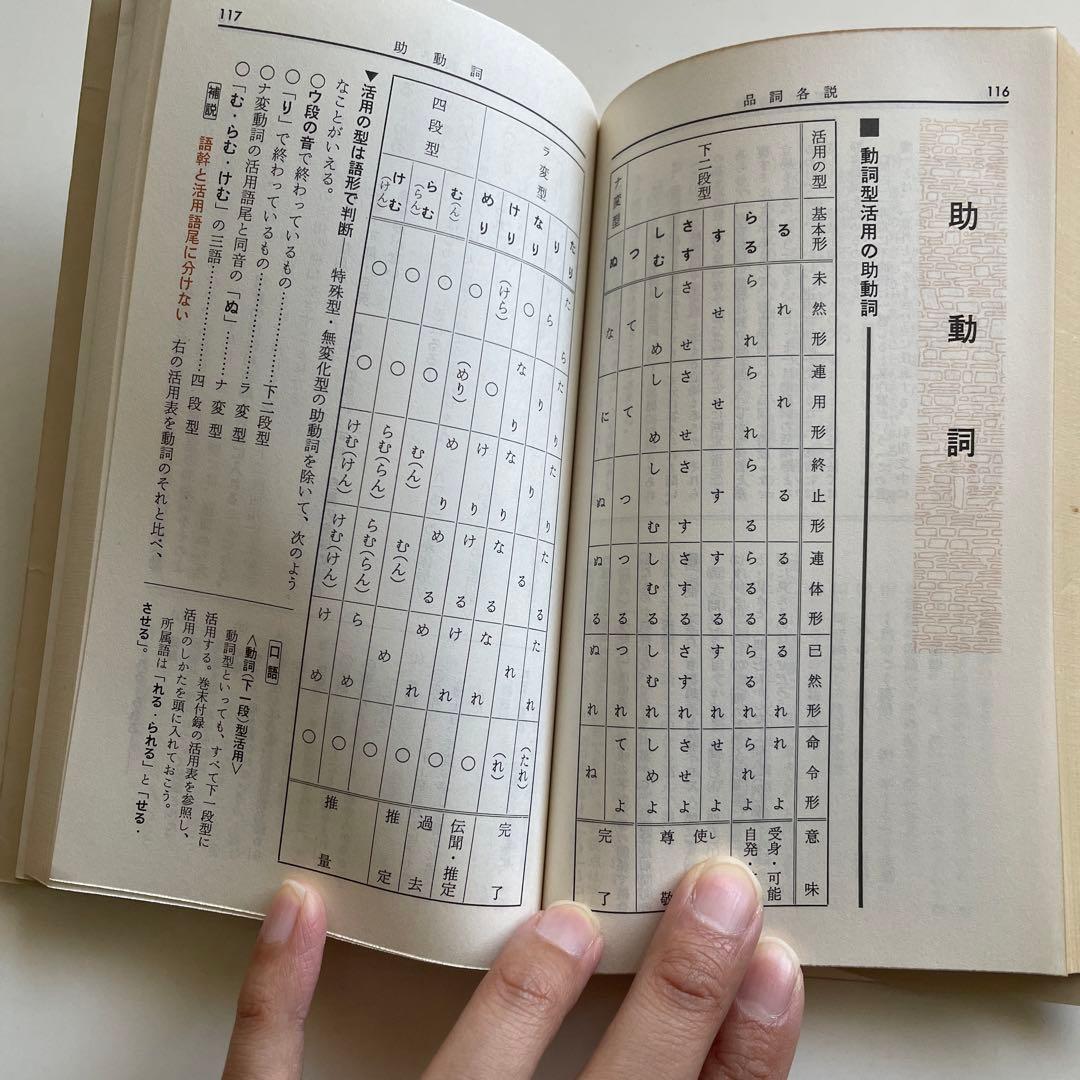 116
品詞各説
助動詞
■動詞型活用の助動詞
活用の型 基本形 未然形 連用形 終止形 連体形 已然形 命令形 意味
下二段型 る れ れ る るる るれ れよ 受身・可能
自発・
らる られ られ らる らるる らるれ られよ
す せ せ す する すれ せよ 使し
尊敬
さす させ させ さす さする さすれ させよ
しむ しめ しめ しむ しむる しむれ しめよ
つ て て つ つる つれ てよ 完了
ナ変型 ぬ な に ぬ ぬる ぬれ ね
117
助動詞
ラ変型 たり たら たり たり たる たれ (たれ) 完了
り ら り り る れ (れ)
なり ○ なり なり なる なれ ○ 伝聞・推定
けり (けら) ○ けり ける けれ ○ 過去
めり ○ (めり) めり める めれ ○ 推定
四段型 む(ん) ○ ○ む(ん) む(ん) め ○ 推量
らむ(らん) ○ ○ らむ(らん) らむ(らん) らめ ○
けむ(けん) ○ ○ けむ(けん) けむ(けん) けめ ○
▼活用の型は語形で判断――特殊型・無変化型の助動詞を除いて、次のよう
なことがいえる。
○ウ段の音で終わっているもの…………下二段型
○「り」で終わっているもの…………ラ変型
○ナ変動詞の活用語尾と同音の「ぬ」………ナ変型
○「む・らむ・けむ」の三語…………四段型
補説 語幹と活用語尾に分けない 右の活用表を動詞のそれと比べ、
口語
〈動詞(下一段)型活用〉
動詞型といっても、すべて下一段型に
活用する。巻末付録の活用表を参照し、
活用のしかたを頭に入れておこう。
所属語は「れる・られる」と「せる・
させる」。